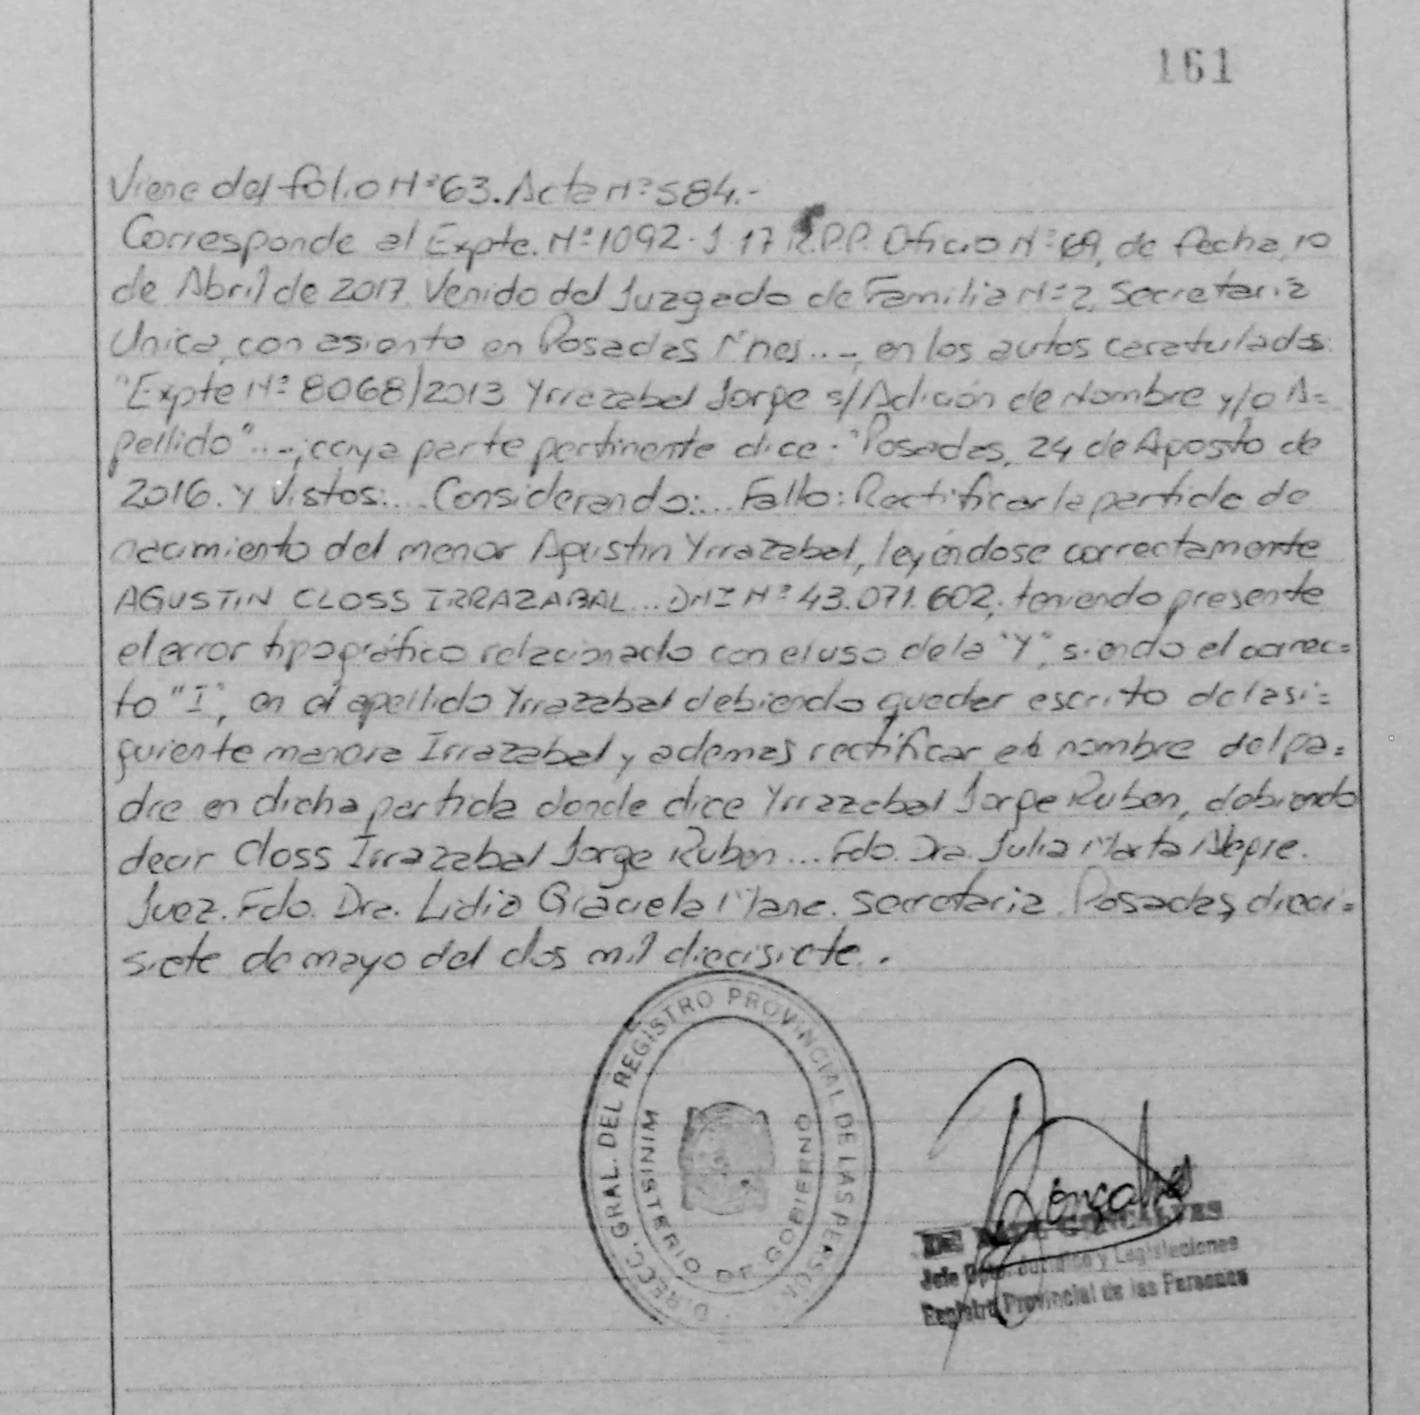 161
Viene del folio Nº 63. Acta Nº 584.-
Corresponde al Expte. Nº 1092-J-17 R.P.P. Oficio Nº 69, de fecha 10
de Abril de 2017. Venido del Juzgado de Familia Nº 2, Secretaria
Unica, con asiento en Posadas Mnes...-, en los autos caratulados:
"Expte Nº 8068/2013 Yrrazabal Jorge s/Adición de Nombre y/o A=
pellido"..-; cuya parte pertinente dice: "Posadas, 24 de Agosto de
2016. Y Vistos:... Considerando:... Fallo: Rectificar la partida de
nacimiento del menor Agustin Yrrazabal, leyéndose correctamente
AGUSTIN CLOSS IRRAZABAL... DNI Nº 43.071.602, teniendo presente
el error tipográfico relacionado con el uso de la "Y", siendo el correc=
to "I", en el apellido Yrrazabal debiendo quedar escrito de la si=
guiente manera Irrazabal y ademas rectificar el nombre del pa=
dre en dicha partida donde dice Yrrazabal Jorge Ruben, debiendo
decir Closs Irrazabal Jorge Ruben... Fdo. Dra. Julia Marta Alegre.
Juez. Fdo. Dra. Lidia Graciela Secretaria. Posadas, dieci=
siete de mayo del dos mil diecisiete.
DIRECC. GRAL. DEL REGISTRO PROVINCIAL DE LAS PERSON
MINISTERIO DE GOBIERNO
GONCALVES
Jefe Dpto. Juridico y Legislaciones
Registro Provincial de las Personas